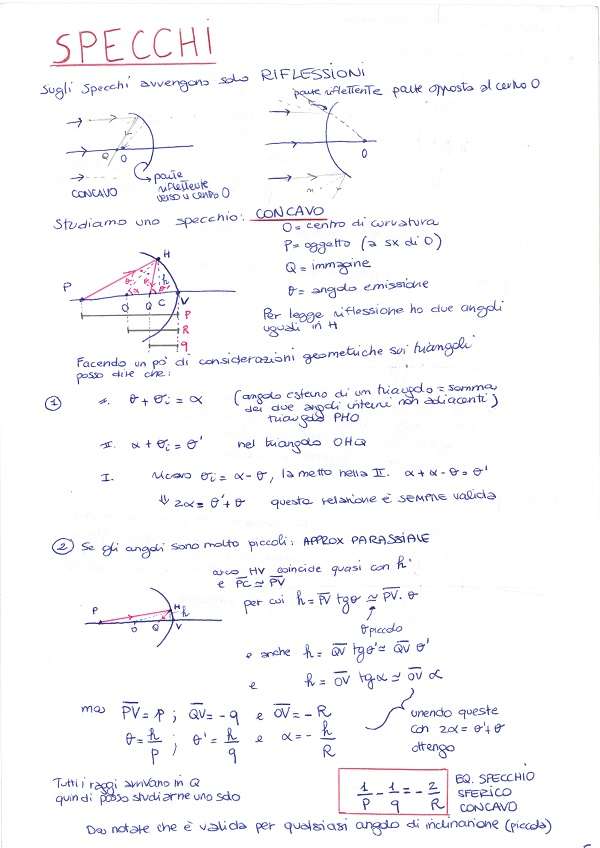 SPECCHI
Sugli specchi avvengono solo RIFLESSIONI
parte riflettente parte opposta al centro O
r
Q O
O
CONCAVO
parte
riflettente
verso il centro O
Studiamo uno specchio: CONCAVO
O = centro di curvatura
P = oggetto (a sx di O)
Q = immagine
θ = angolo emissione
Per legge riflessione ho due angoli
uguali in H
H
P
h
O Q C V
P
R
q
Facendo un po' di considerazioni geometriche sui triangoli
posso dire che:
① I. θ + θi = α (angolo esterno di un triangolo = somma
dei due angoli interni non adiacenti)
triangolo PHO
II. α + θi = θ' nel triangolo OHQ
I. ricavo θi = α - θ, la metto nella II. α + α - θ = θ'
⇓ 2α = θ' + θ questa relazione è SEMPRE valida
② Se gli angoli sono molto piccoli: APPROX PARASSIALE
arco HV coincide quasi con h
e PC ≃ PV
P O Q V H h
per cui h = PV tgθ ≃ PV · θ
θ piccolo
e anche h = QV tgθ' ≃ QV θ'
e h = OV tgα ≃ OV α
ma PV = p ; QV = - q e OV = - R
θ = h/p ; θ' = h/q e α = - h/R
unendo queste
con 2α = θ' + θ
ottengo
Tutti i raggi arrivano in Q
quindi posso studiarne uno solo
1/P - 1/q = - 2/R
EQ. SPECCHIO
SFERICO
CONCAVO
Da notare che è valida per qualsiasi angolo di inclinazione (piccolo)